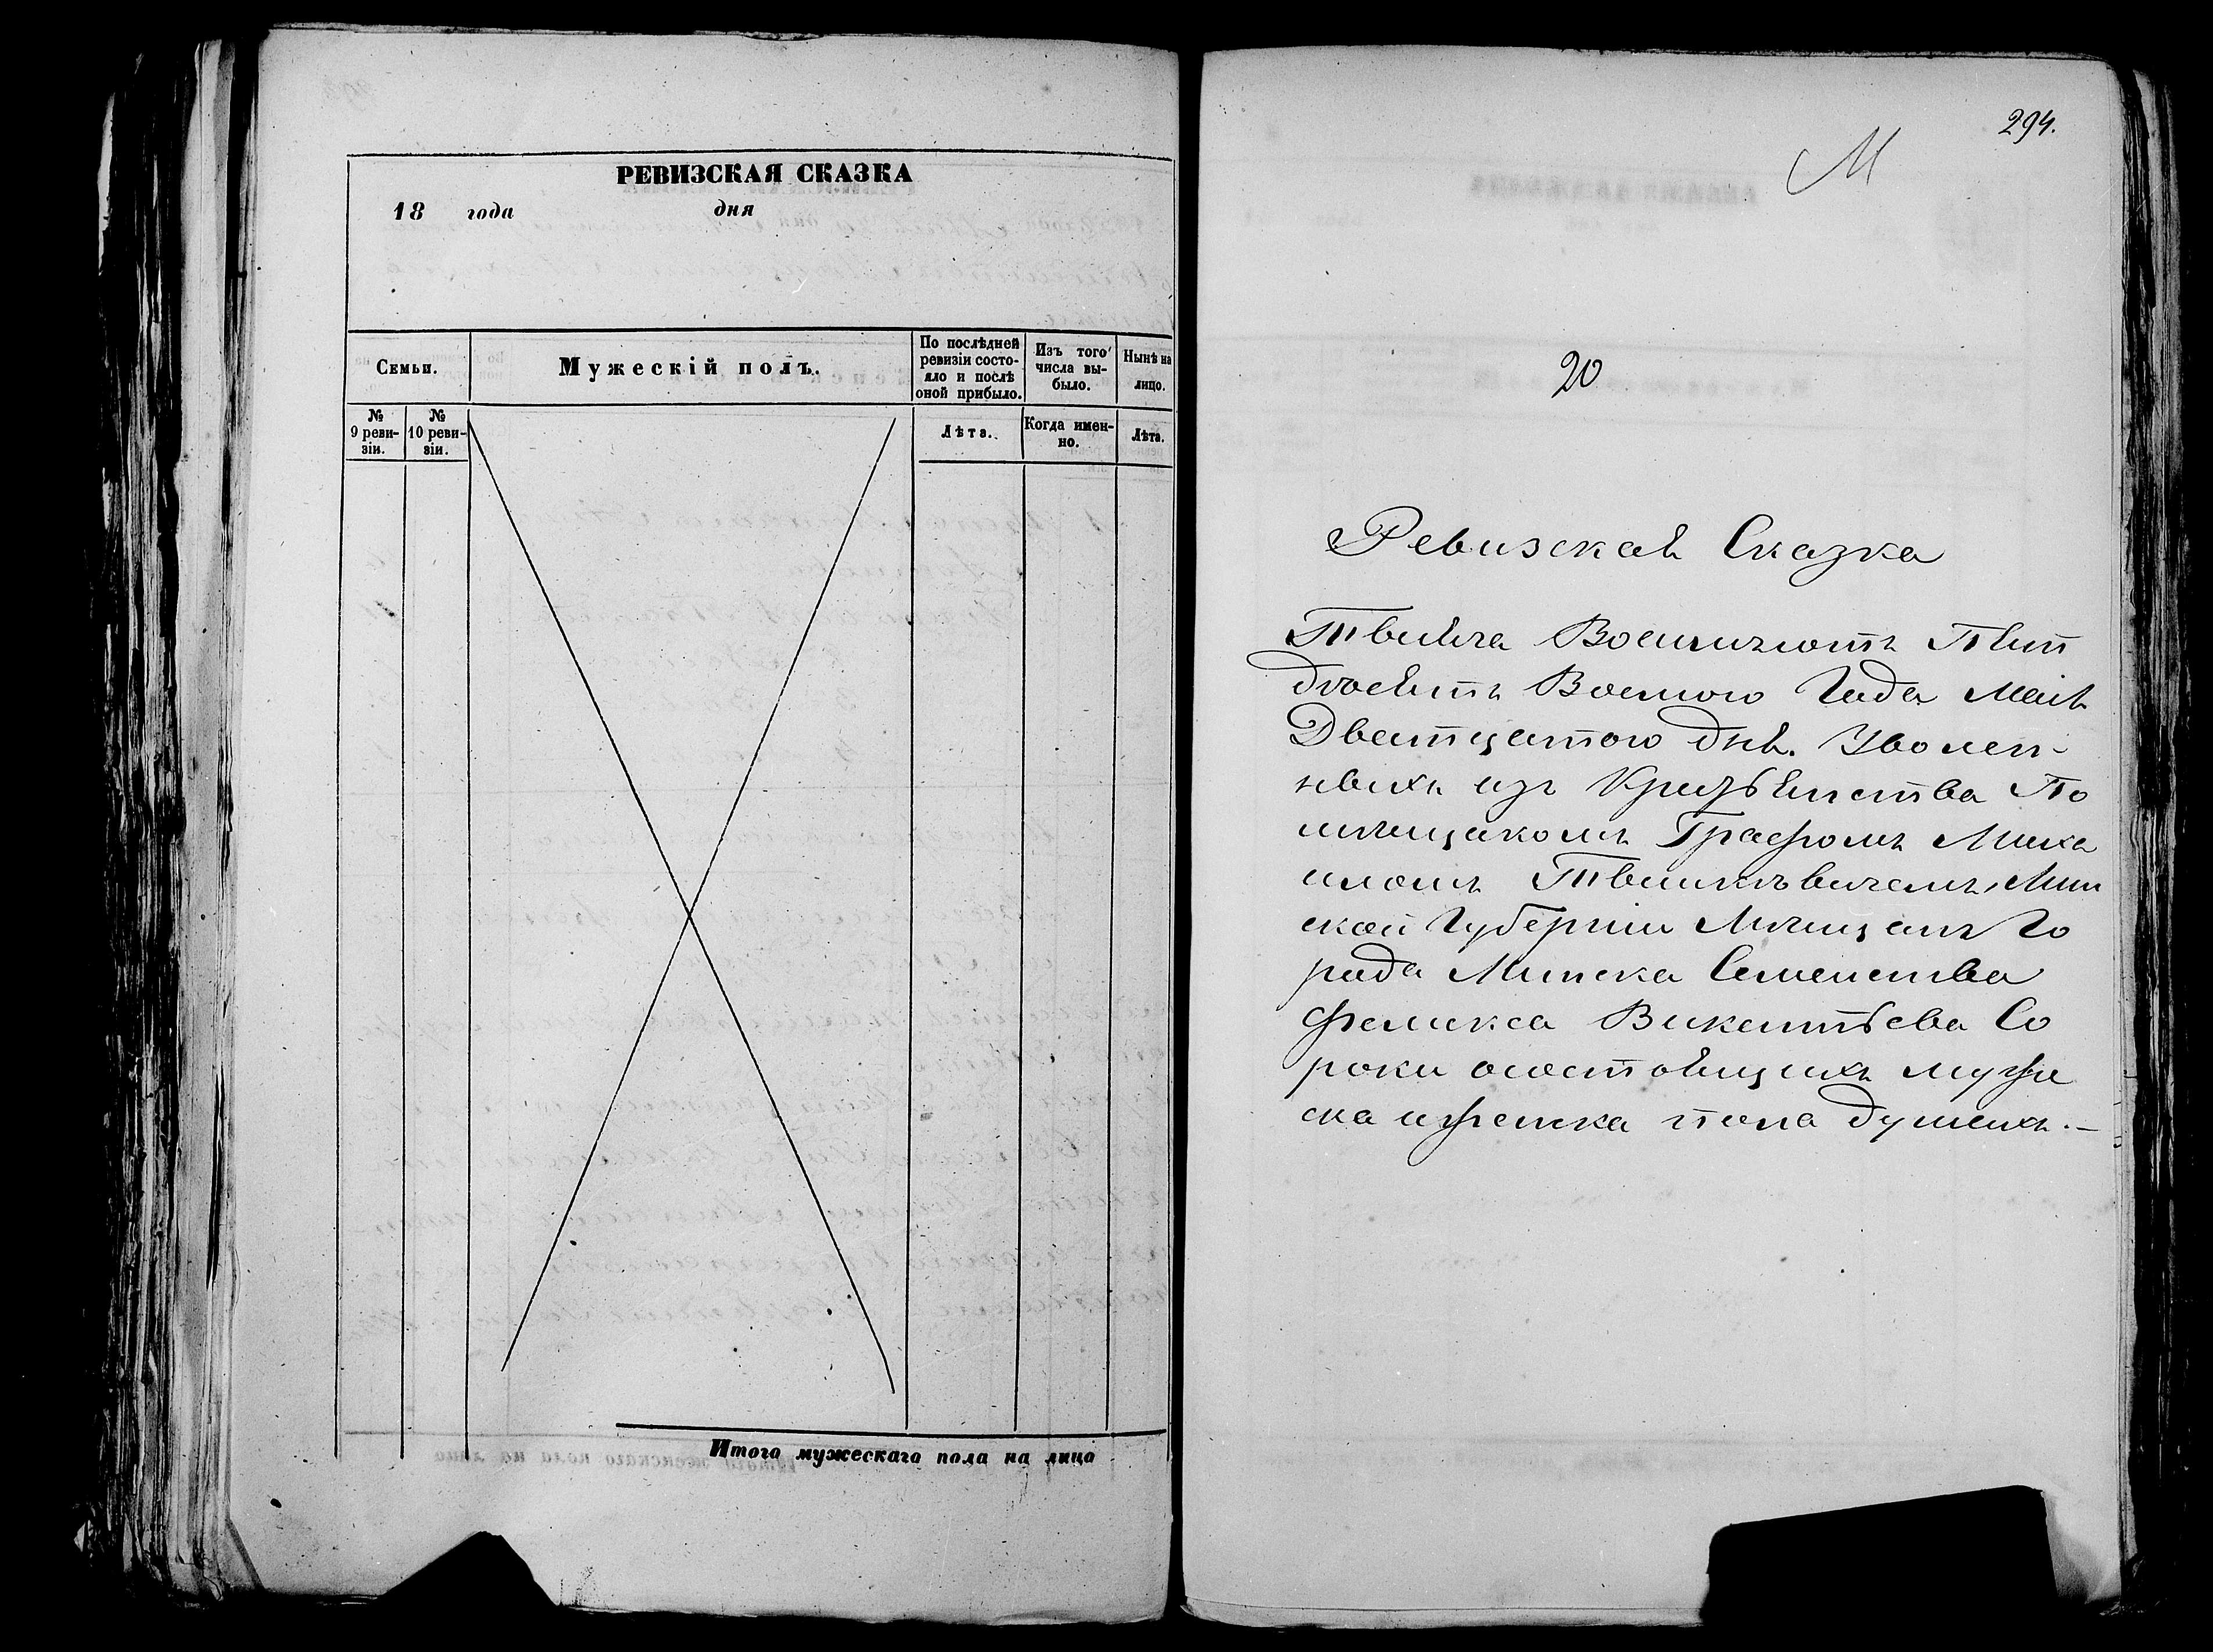 РЕВИЗСКАЯ СКАЗКА
18 года дня
Семьи.
Мужескій полъ.
По послѣдней ревизіи состояло и послѣ оной прибыло.
Изъ того числа выбыло.
Нынѣ на лицо.
№ 9 ревизіи.
№ 10 ревизіи.
Лѣта.
Когда именно.
Лѣта.
Итого мужескаго пола на лицо
294.
М
20
Ревизская Сказка
Тысяча Восимьсотъ Пят
дѣсятъ Восмого Года Мая
Двятцатого дня. Уволен-
ныхъ изъ Крипьянства По
мѣщикомъ Графомъ Миха
иломъ Тышкѣвичемъ, Мин
ской Губерніи Мѣщанъ Го
рода Минска Семейства
Феликса Викентьева Со
роки состоящихъ муже
ска и женска пола душехъ.—